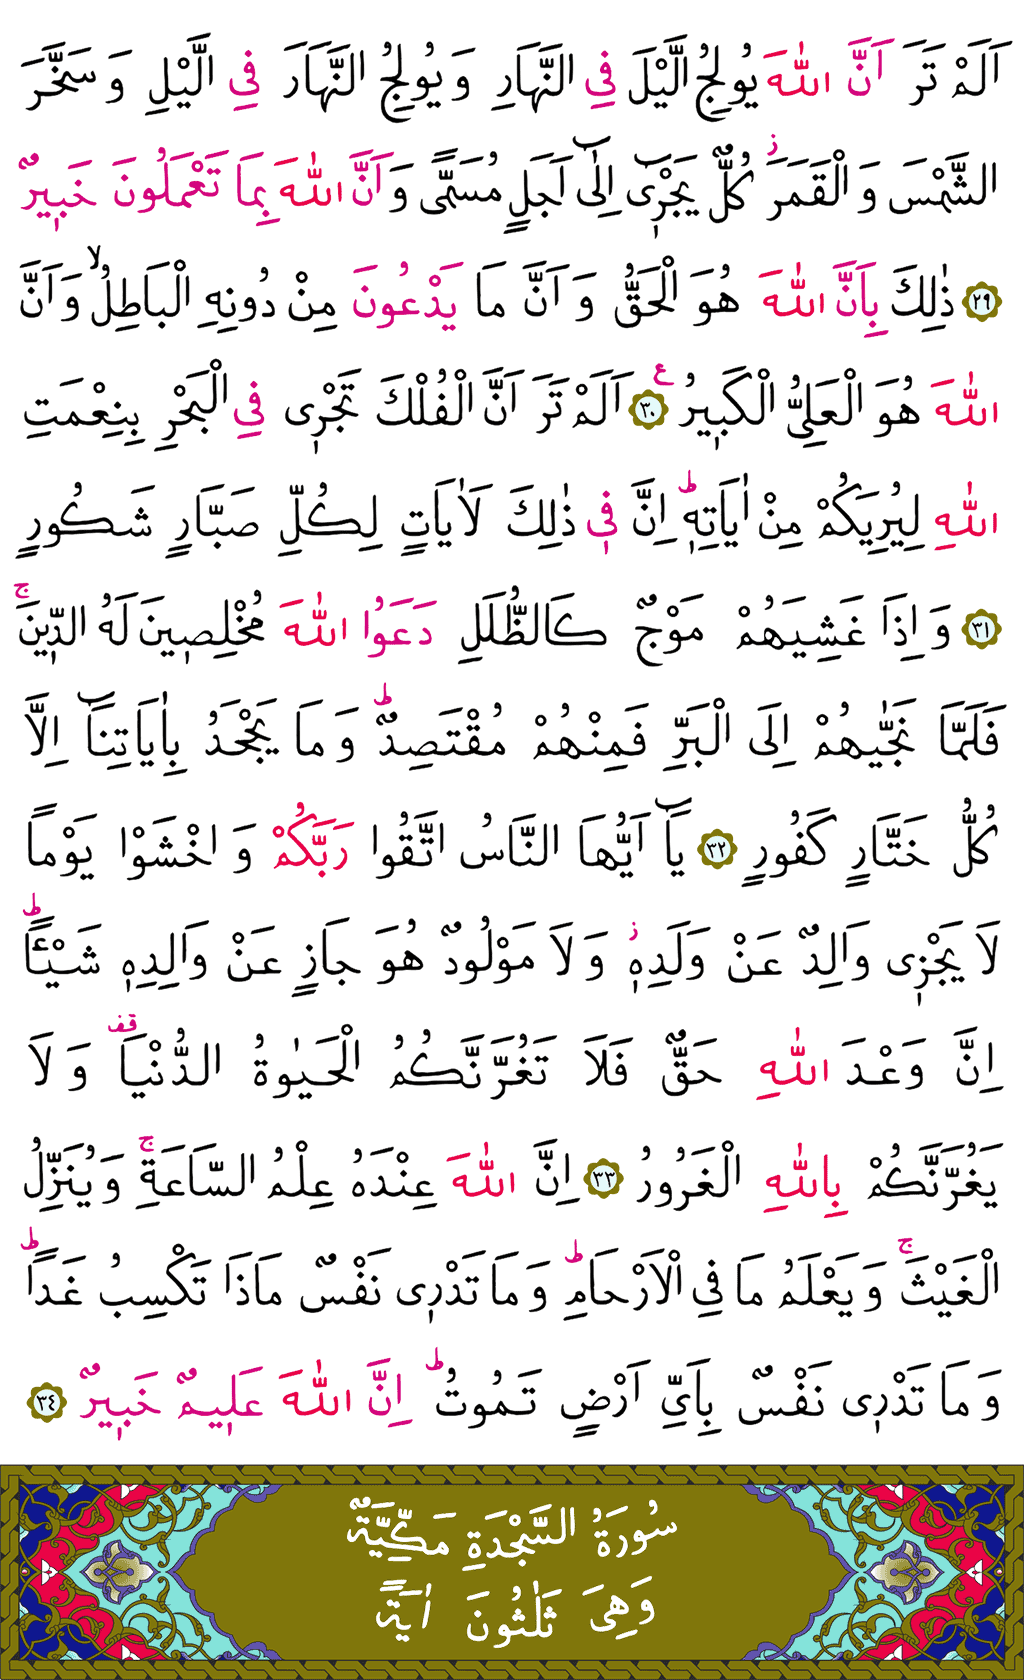 اَلَمْ تَرَ اَنَّ اللّٰهَ يُولِجُ الَّيْلَ فِي النَّهَارِ وَيُولِجُ النَّهَارَ فِي الَّيْلِ وَسَخَّرَ
الشَّمْسَ وَالْقَمَرَۘ كُلٌّ يَجْرٖٓي اِلٰٓى اَجَلٍ مُسَمًّى وَاَنَّ اللّٰهَ بِمَا تَعْمَلُونَ خَبٖيرٌ
﴿٢٩﴾ ذٰلِكَ بِاَنَّ اللّٰهَ هُوَ الْحَقُّ وَاَنَّ مَا يَدْعُونَ مِنْ دُونِهِ الْبَاطِلُۙ وَاَنَّ
اللّٰهَ هُوَ الْعَلِيُّ الْكَبٖيرُ ﴿٣٠﴾ اَلَمْ تَرَ اَنَّ الْفُلْكَ تَجْرٖي فِي الْبَحْرِ بِنِعْمَتِ
اللّٰهِ لِيُرِيَكُمْ مِنْ اٰيَاتِهٖؕ اِنَّ فٖي ذٰلِكَ لَاٰيَاتٍ لِكُلِّ صَبَّارٍ شَكُورٍ
﴿٣١﴾ وَاِذَا غَشِيَهُمْ مَوْجٌ كَالظُّلَلِ دَعَوُا اللّٰهَ مُخْلِصٖينَ لَهُ الدّٖينَۚ
فَلَمَّا نَجّٰيهُمْ اِلَى الْبَرِّ فَمِنْهُمْ مُقْتَصِدٌؕ وَمَا يَجْحَدُ بِاٰيَاتِنَٓا اِلَّا
كُلُّ خَتَّارٍ كَفُورٍ ﴿٣٢﴾ يَٓا اَيُّهَا النَّاسُ اتَّقُوا رَبَّكُمْ وَاخْشَوْا يَوْمًا
لَا يَجْزٖي وَالِدٌ عَنْ وَلَدِهٖؗ وَلَا مَوْلُودٌ هُوَ جَازٍ عَنْ وَالِدِهٖ شَيْـًٔاؕ
اِنَّ وَعْدَ اللّٰهِ حَقٌّ فَلَا تَغُرَّنَّكُمُ الْحَيٰوةُ الدُّنْيَاࣞ وَلَا
يَغُرَّنَّكُمْ بِاللّٰهِ الْغَرُورُ ﴿٣٣﴾ اِنَّ اللّٰهَ عِنْدَهُ عِلْمُ السَّاعَةِۚ وَيُنَزِّلُ
الْغَيْثَۚ وَيَعْلَمُ مَا فِي الْاَرْحَامِؕ وَمَا تَدْرٖي نَفْسٌ مَاذَا تَكْسِبُ غَدًاؕ
وَمَا تَدْرٖي نَفْسٌ بِاَيِّ اَرْضٍ تَمُوتُؕ اِنَّ اللّٰهَ عَلٖيمٌ خَبٖيرٌ ﴿٣٤﴾
سُورَةُ السَّجْدَةِ مَكِّيَّةٌ
وَهِيَ ثَلٰثُونَ اٰيَةً